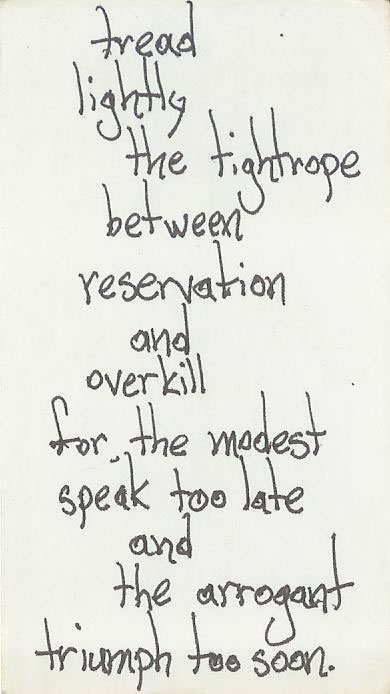 tread
lightly
the tightrope
between
reservation
and
overkill
for the modest
speak too late
and
the arrogant
triumph too soon.